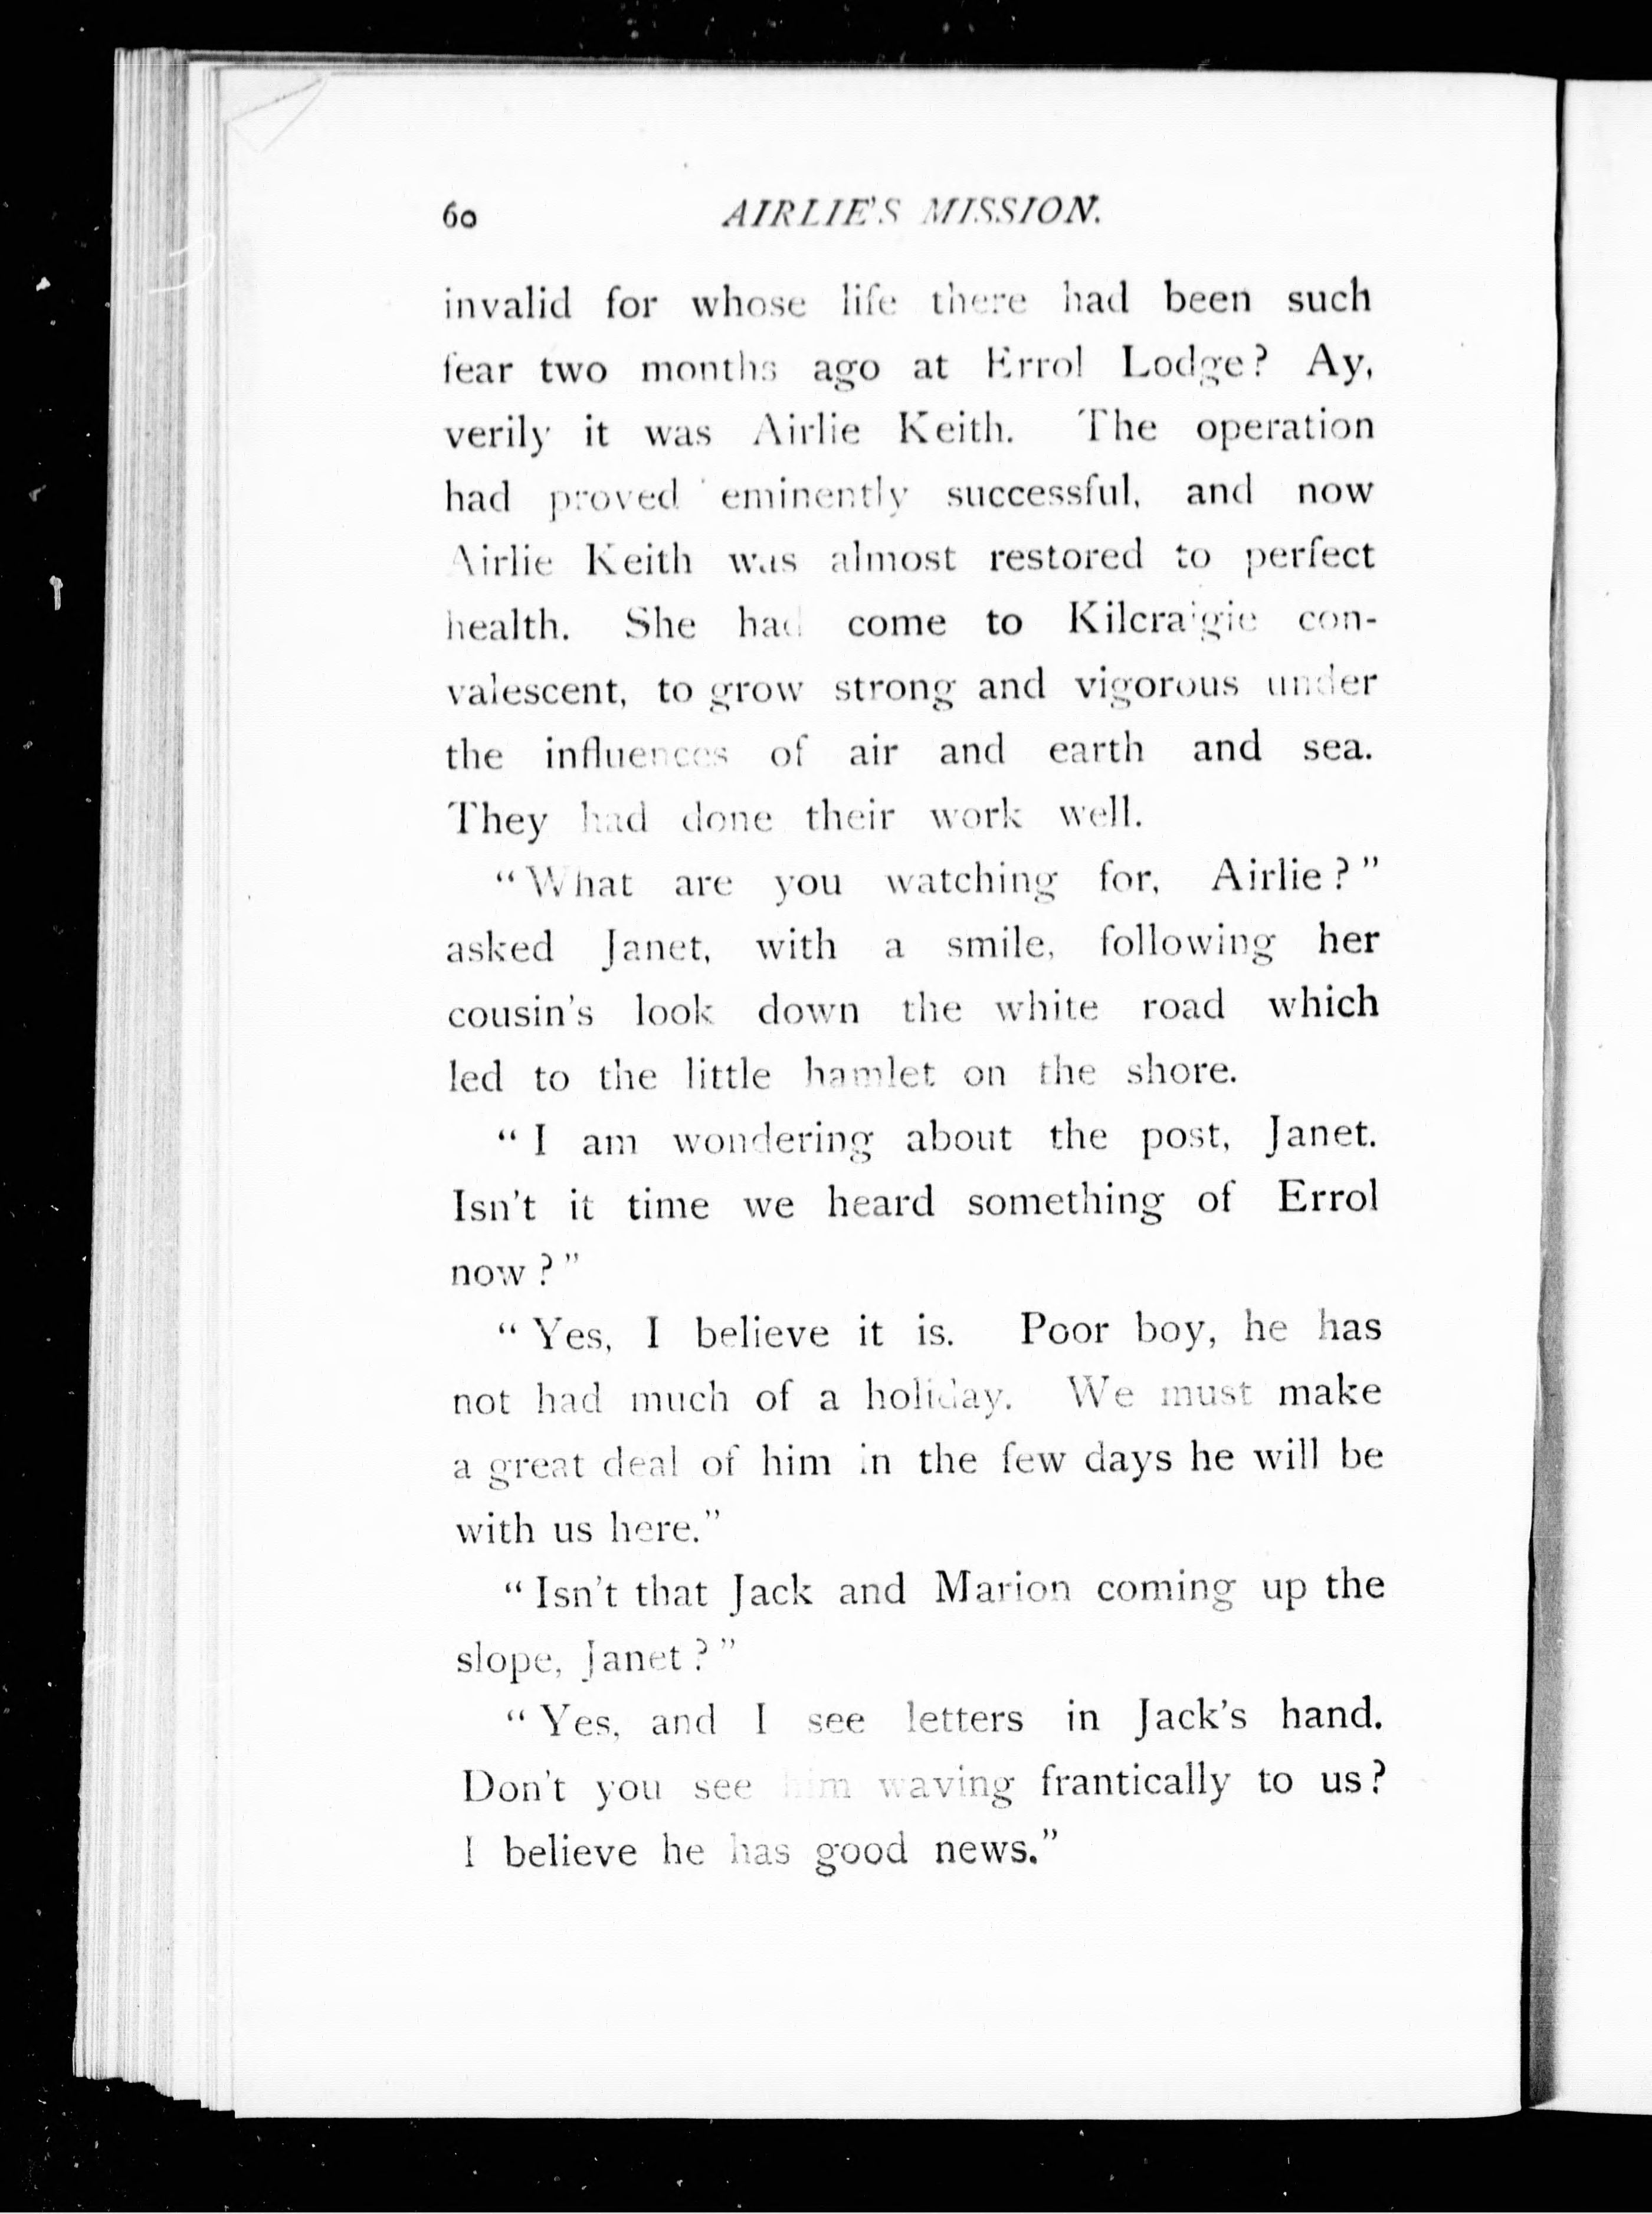 60 AIRLIE'S MISSION.
invalid for whose life there had been such
fear two months ago at Errol Lodge? Ay,
verily it was Airlie Keith. The operation
had proved eminently successful, and now
Airlie Keith was almost restored to perfect
health. She had come to Kilcraigie con-
valescent, to grow strong and vigorous under
the influences of air and earth and sea.
They had done their work well.
“What are you watching for, Airlie?”
asked Janet, with a smile, following her
cousin's look down the white road which
led to the little hamlet on the shore.
“I am wondering about the post, Janet.
Isn't it time we heard something of Errol
now?”
“Yes, I believe it is. Poor boy, he has
not had much of a holiday. We must make
a great deal of him in the few days he will be
with us here.”
“Isn't that Jack and Marion coming up the
slope, Janet?”
“Yes, and I see letters in Jack's hand.
Don't you see him waving frantically to us?
I believe he has good news.”